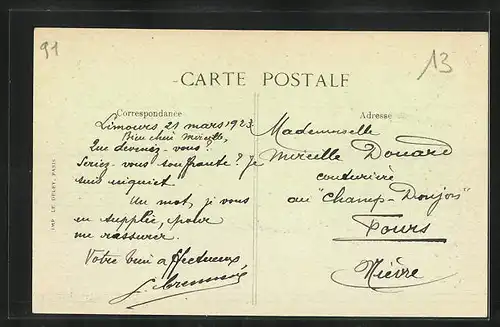 91
13
CARTE POSTALE
Correspondance
Limours 21 mars 1923
Bien chère Mireille,
Que devenez-vous?
Seriez-vous souffrante? Je
suis inquiet
Un mot, je vous
en supplie, pour
me rassurer.
Votre bien affectueux
Adresse
Mademoiselle
Mireille Douard
couturière
au "Champ-Donjon"
Fours
Nièvre
IMP. LE DELEY, PARIS